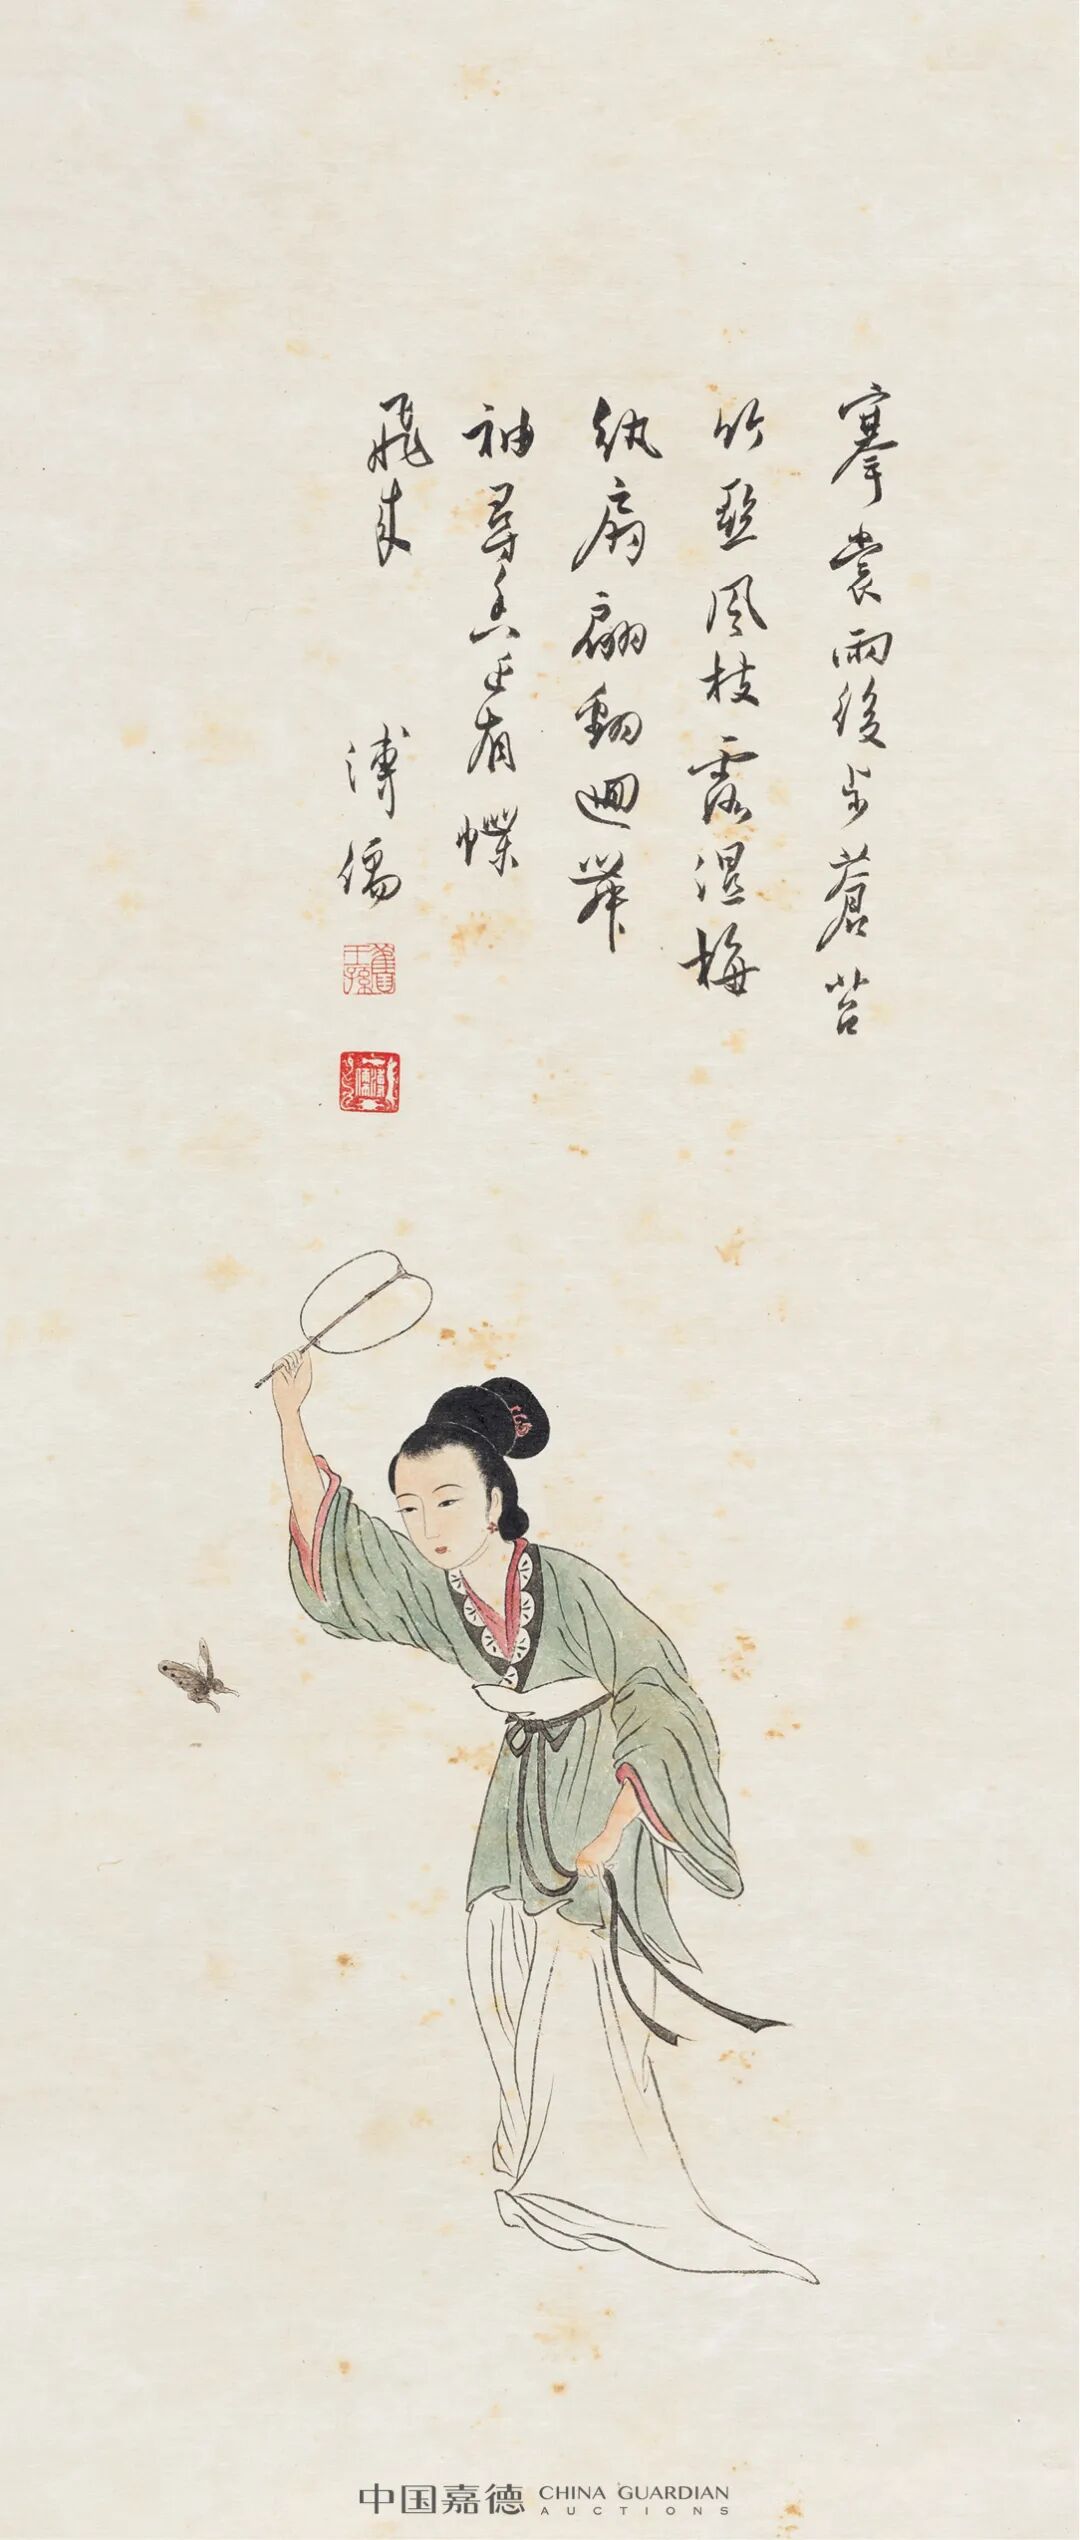 搴裳雨後步蒼苔
竹壓風枝露濕梅
紈扇翩翻迴舞
袖尋香正有蝶
飛來
溥儒
舊王孫
溥儒
中国嘉德 CHINA GUARDIAN
AUCTIONS